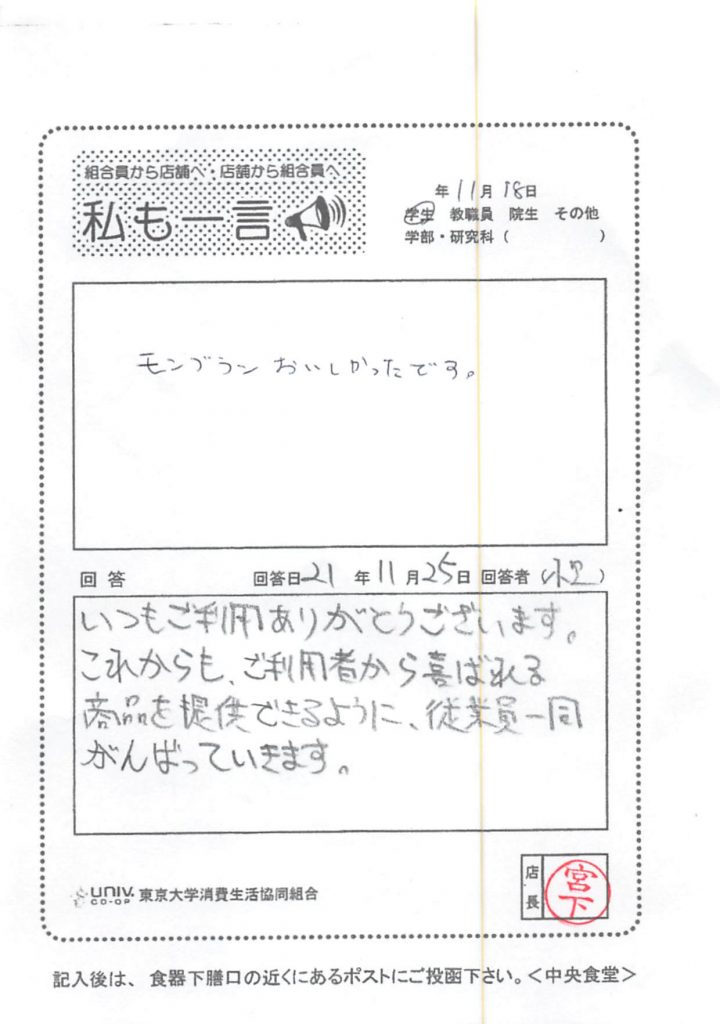 組合員から店舗へ・店舗から組合員へ
私も一言
年 11月 18日
学生 教職員 院生 その他
学部・研究科 ( )
モンブラン おいしかったです。
回 答 回答日 21 年 11 月 25日 回答者 ( )
いつもご利用ありがとうございます。
これからも、ご利用者から喜ばれる
商品を提供できるように、従業員一同
がんばっていきます。
UNIV. CO-OP 東京大学消費生活協同組合
店長 宮下
記入後は、食器下膳口の近くにあるポストにご投函下さい。<中央食堂>